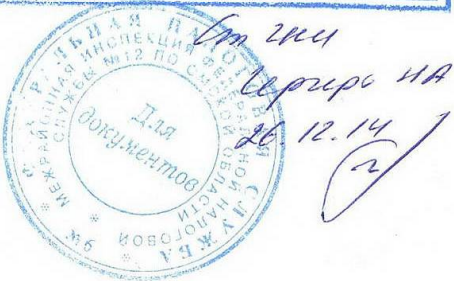 ФЕДЕРАЛЬНАЯ НАЛОГОВАЯ СЛУЖБА * №6 *
МЕЖРАЙОННАЯ ИНСПЕКЦИЯ ФЕДЕРАЛЬНОЙ НАЛОГОВОЙ
СЛУЖБЫ №12 ПО ОМСКОЙ ОБЛАСТИ
Для
документов
Ст гни
26.12.14